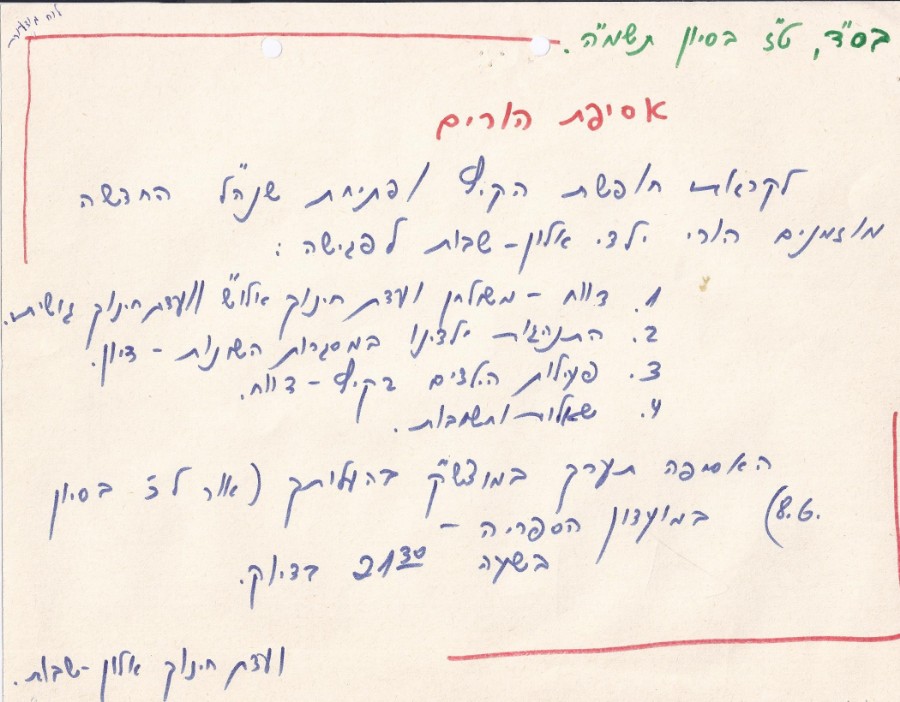 לוח מודעות
בס"ד, ט"ז בסיון תשמ"ה.
אסיפת הורים
לקראת חופשת הקיץ ופתיחת שנה"ל החדשה
מוזמנים הורי ילדי אלון-שבות לפגישה:
1. דווח - משולחן ועדת חינוך אלו"ש וועדת חינוך גושית.
2. התנהגות ילדינו במסגרות השונות - דיון.
3. פעילות הילדים בקיץ - דווח.
4. שאלות ותשובות.
האספה תערך במוצש"ק בהעלותך (אור ל
בסיון
ט.ש) במועדון הספריה -
בשעה 21³⁰ בדיוק.
ועדת חינוך אלון-שבות.